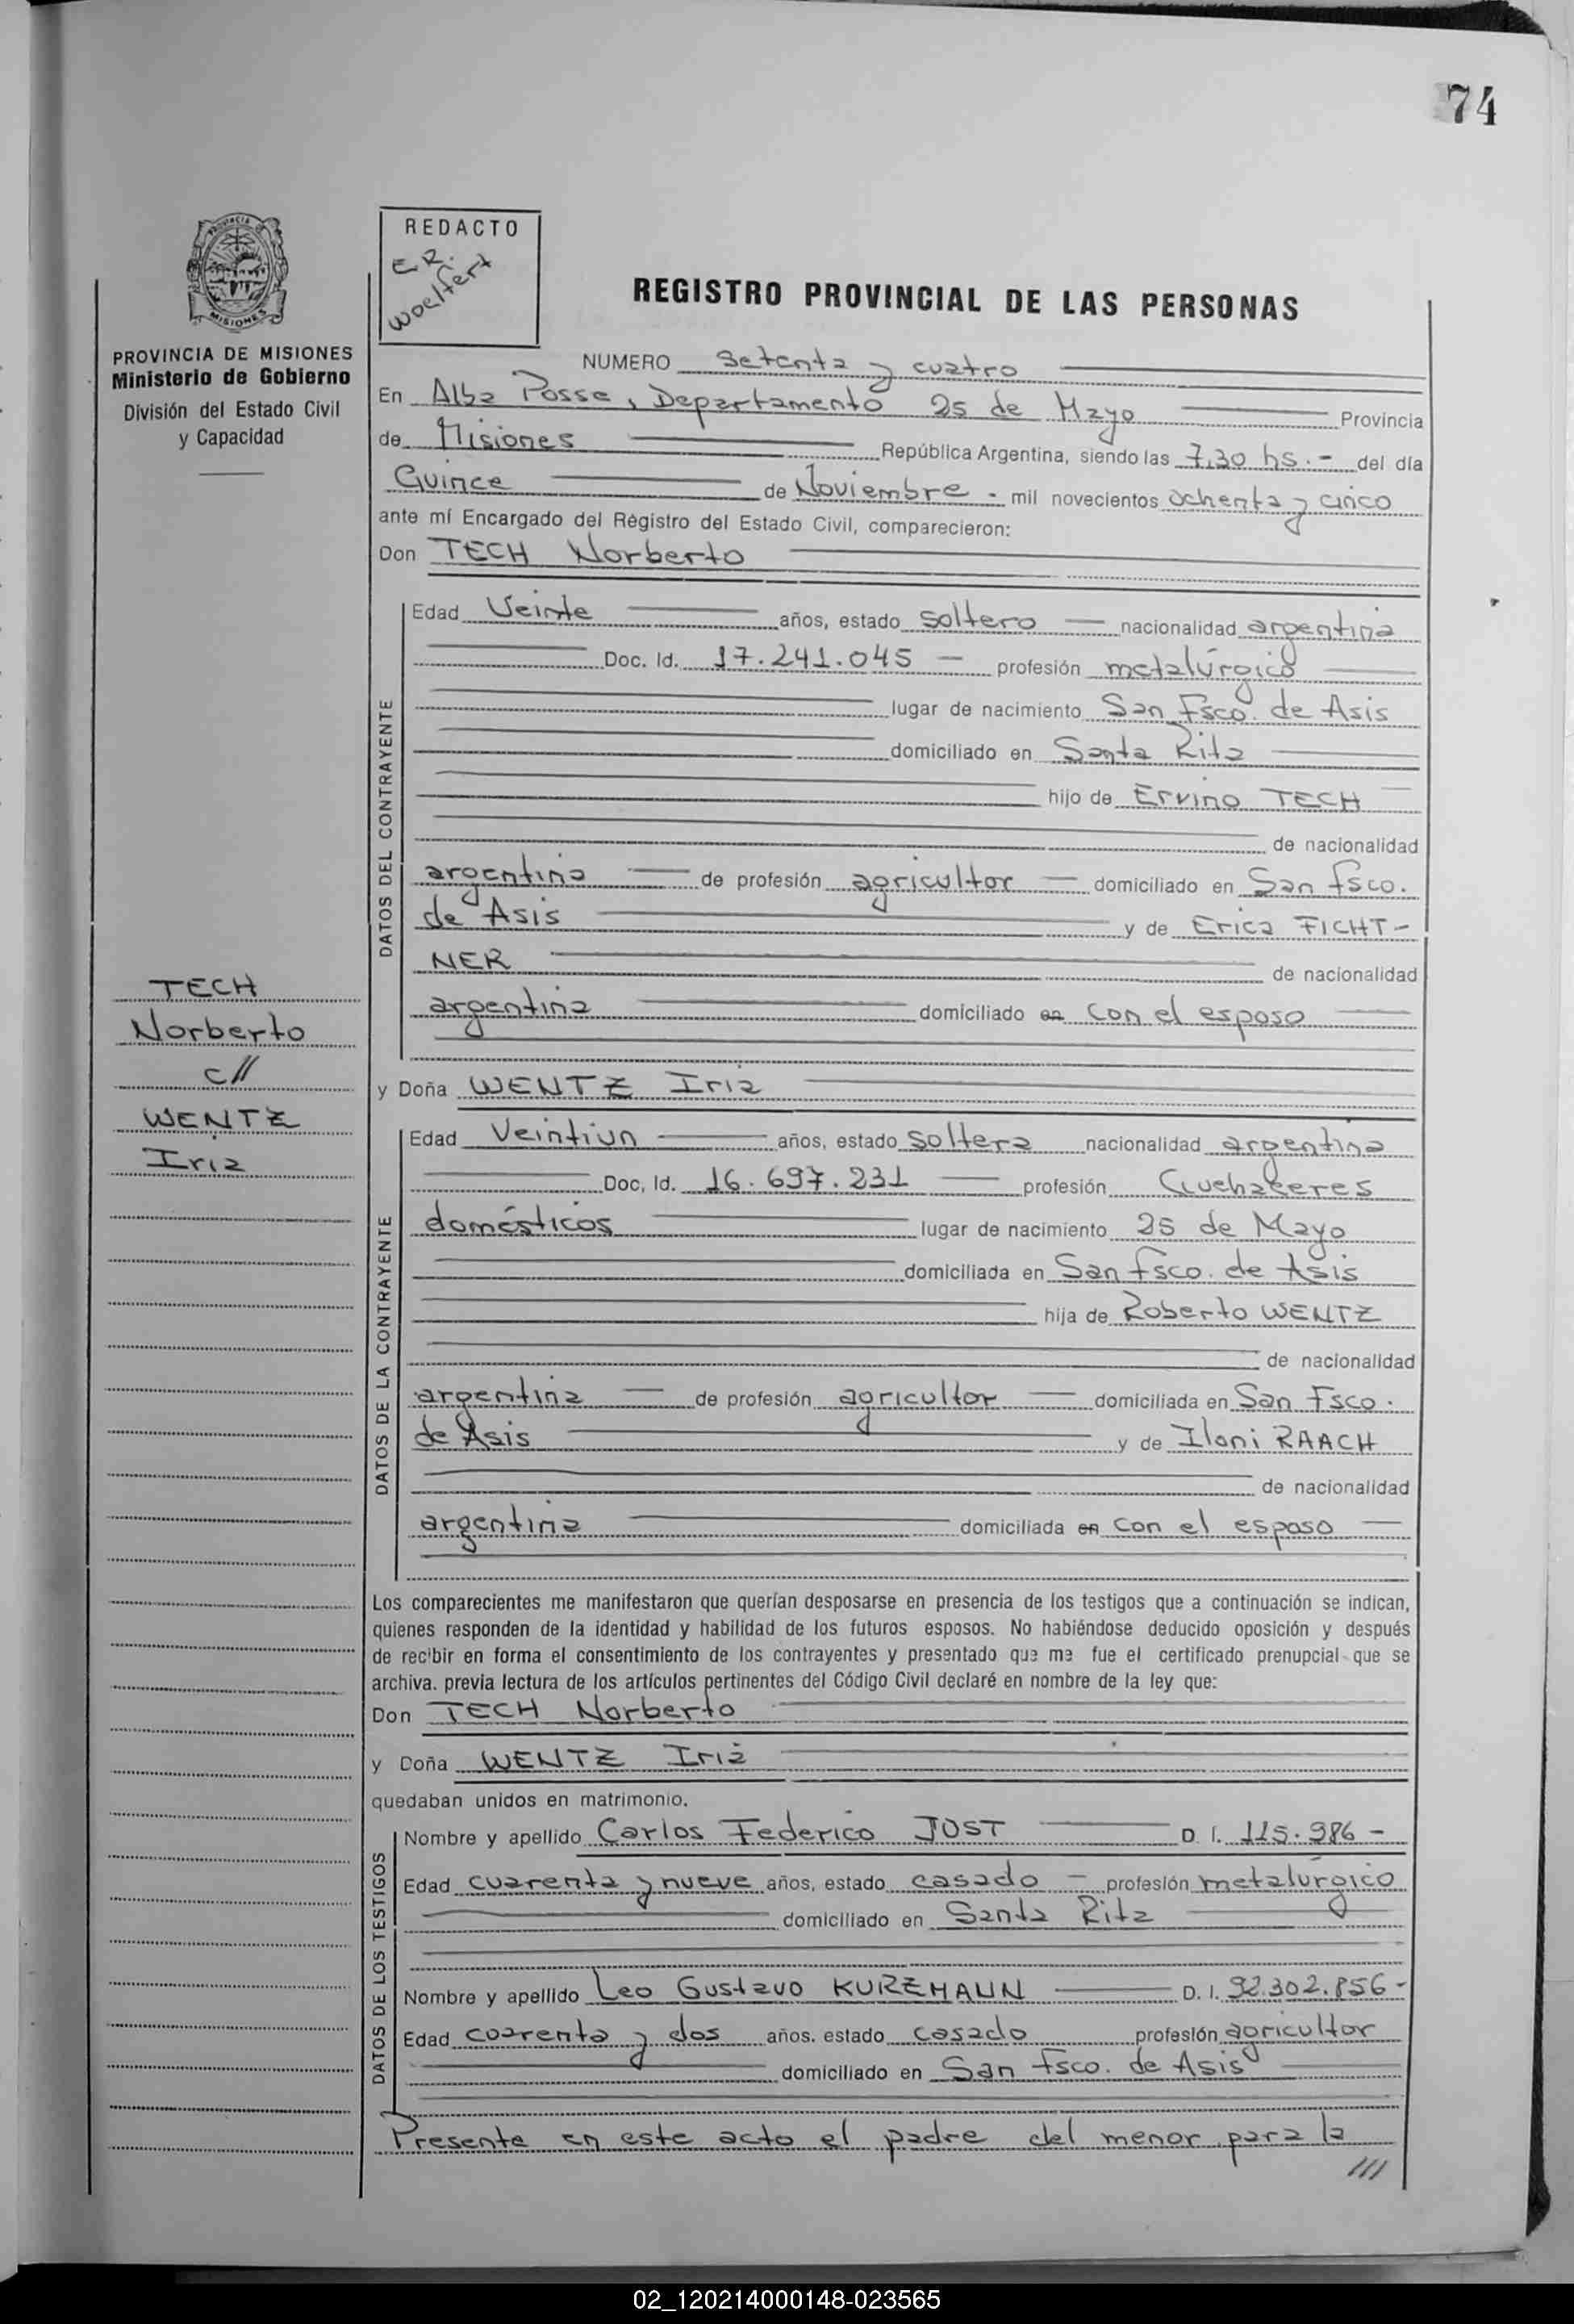 74
PROVINCIA
MISIONES
PROVINCIA DE MISIONES
Ministerio de Gobierno
División del Estado Civil
y Capacidad
REDACTO
E.R.
Woelfert
REGISTRO PROVINCIAL DE LAS PERSONAS
NUMERO Setenta y cuatro
En Alba Posse, Departamento 25 de Mayo Provincia
de Misiones República Argentina, siendo las 7,30 hs.- del día
Quince de Noviembre - mil novecientos ochenta y cinco
ante mí Encargado del Registro del Estado Civil, comparecieron:
Don TECH Norberto
DATOS DEL CONTRAYENTE
Edad Veinte años, estado soltero nacionalidad argentina
Doc. Id. 17.241.045 profesión metalúrgico
lugar de nacimiento San Fsco. de Asis
domiciliado en Santa Rita
hijo de Ervino TECH
de nacionalidad
argentina de profesión agricultor domiciliado en San Fsco.
de Asis y de Erica FICHT-
NER de nacionalidad
argentina domiciliado en con el esposo
TECH
Norberto
c//
WENTZ
Iria
y Doña WENTZ Iria
DATOS DE LA CONTRAYENTE
Edad Veintiun años, estado soltera nacionalidad argentina
Doc, Id. 16.697.231 profesión Quehaceres
domésticos lugar de nacimiento 25 de Mayo
domiciliada en San Fsco. de Asis
hija de Roberto WENTZ
de nacionalidad
argentina de profesión agricultor domiciliada en San Fsco.
de Asis y de Iloni RAACH
de nacionalidad
argentina domiciliada en con el esposo
Los comparecientes me manifestaron que querían desposarse en presencia de los testigos que a continuación se indican,
quienes responden de la identidad y habilidad de los futuros esposos. No habiéndose deducido oposición y después
de recibir en forma el consentimiento de los contrayentes y presentado que me fue el certificado prenupcial que se
archiva. previa lectura de los artículos pertinentes del Código Civil declaré en nombre de la ley que:
Don TECH Norberto
y Doña WENTZ Iria
quedaban unidos en matrimonio.
DATOS DE LOS TESTIGOS
Nombre y apellido Carlos Federico JOST D. I. 115.986 -
Edad cuarenta y nueve años, estado casado - profesión metalúrgico
domiciliado en Santa Rita
Nombre y apellido Leo Gustavo KURZMANN D. I. 92.302.856-
Edad cuarenta y dos años. estado casado profesión agricultor
domiciliado en San Fsco. de Asis
Presente en este acto el padre del menor para la
///
02_120214000148-023565